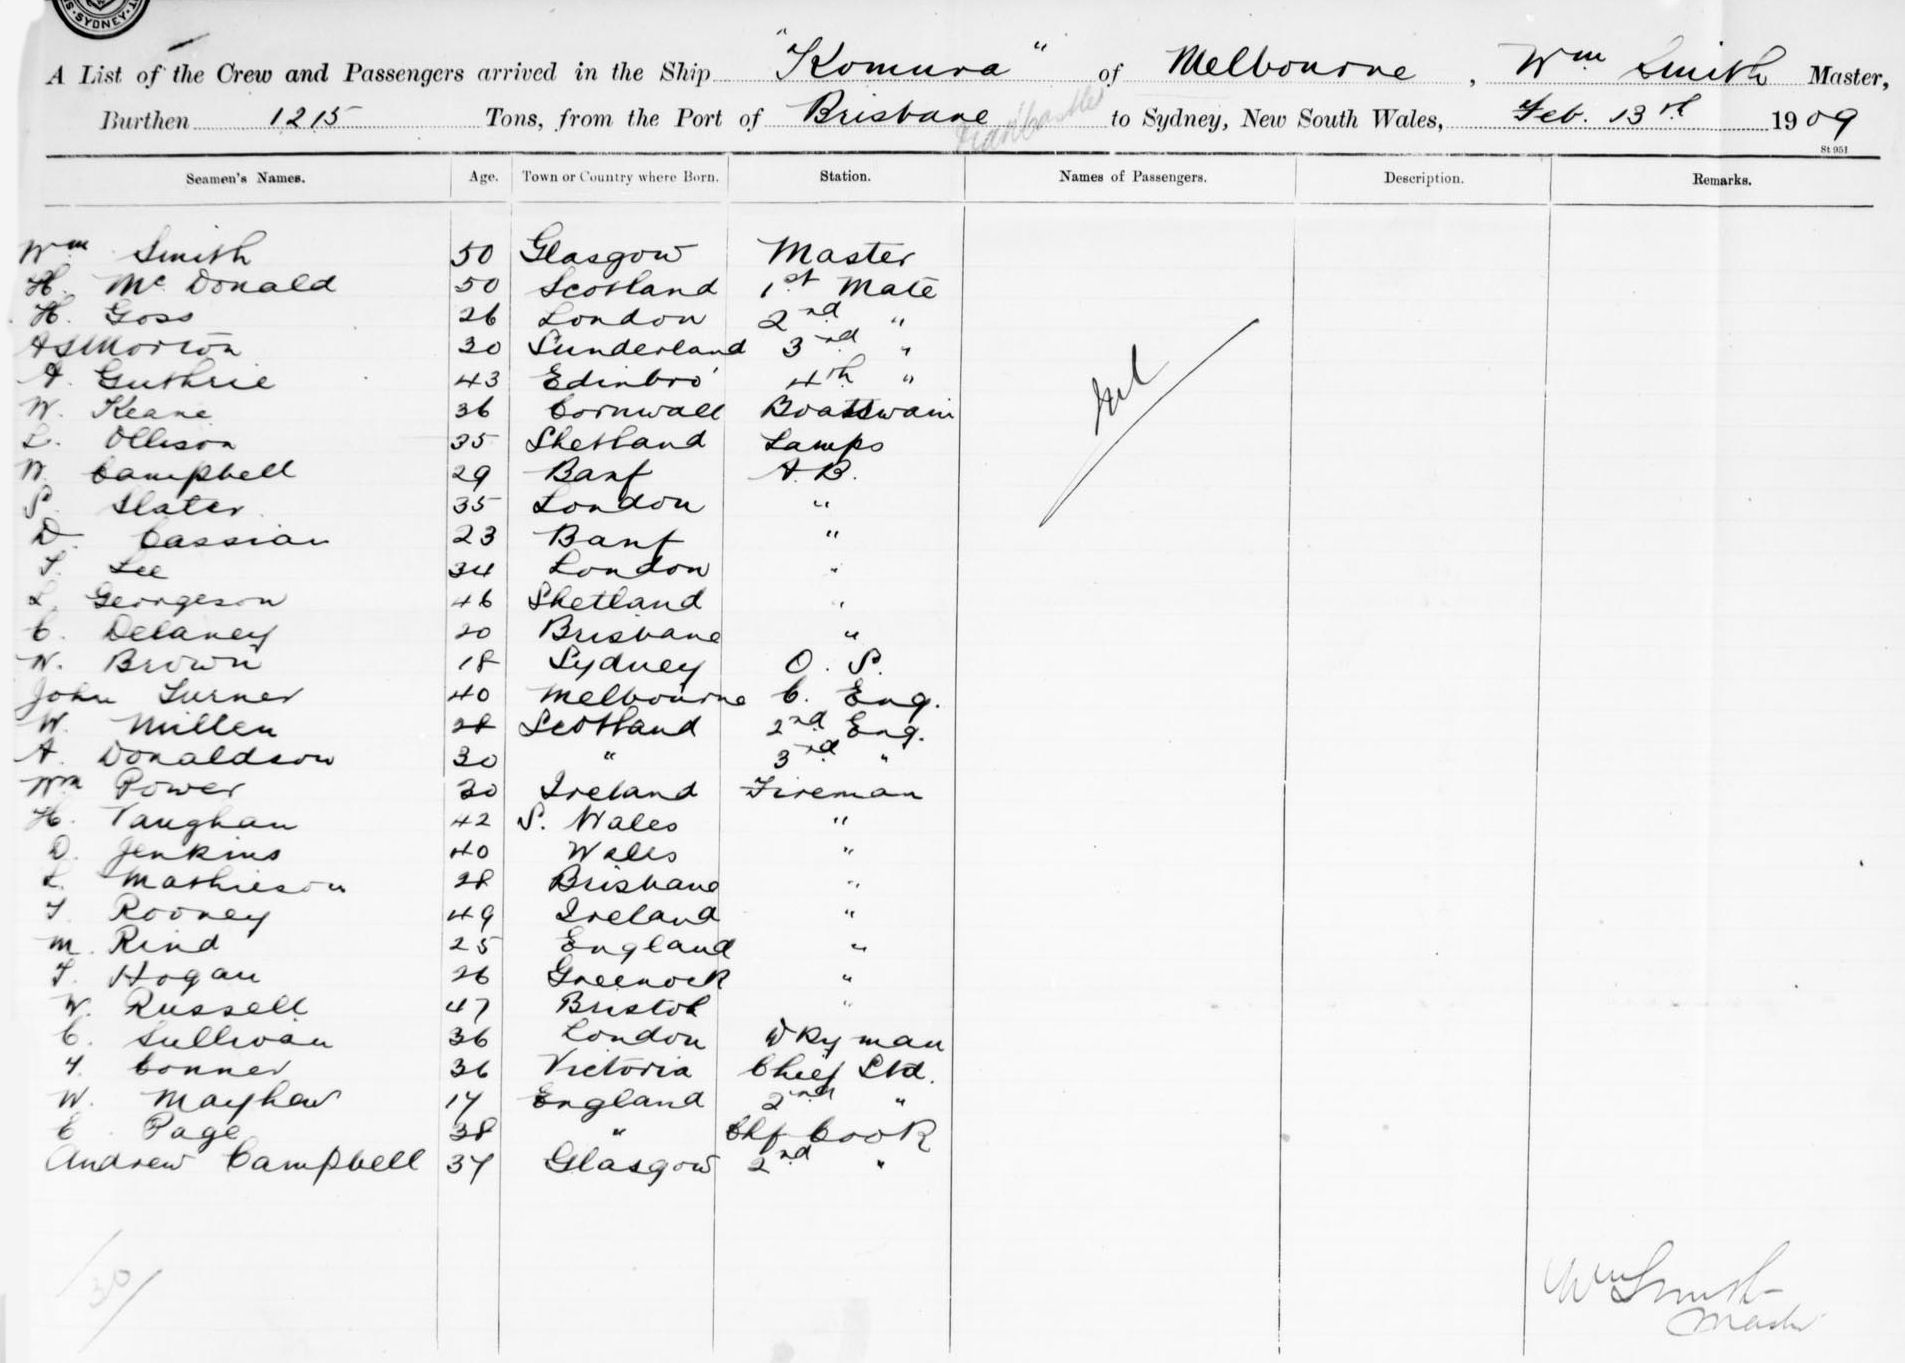 SYDNEY
A List of the Crew and Passengers arrived in the Ship "Komura" of Melbourne, Wm Smith Master,
Burthen 1215 Tons, from the Port of Brisbane to Sydney, New South Wales, Feb. 13th 1909
St 951
Seamen's Names. Age. Town or Country where Born. Station. Names of Passengers. Description. Remarks.
Wm Smith 50 Glasgow Master
H. McDonald 50 Scotland 1st Mate
H. Goss 26 London 2nd "
A S Morton 30 Sunderland 3rd "
A. Guthrie 43 Edinbro' 4th "
W. Keane 36 Cornwall Boatswain
L. Ollison 35 Shetland Lamps
W. Campbell 29 Banf A.B.
S. Slater 35 London "
D. Cassian 23 Banf "
T. Lee 34 London "
L. Georgeson 46 Shetland "
C. Delaney 20 Brisbane "
W. Brown 18 Sydney O. S.
John Turner 40 Melbourne C. Eng.
W. Millen 28 Scotland 2nd Eng.
A. Donaldson 30 " 3rd "
Wm Power 30 Ireland Fireman
H. Vaughan 42 S. Wales "
D. Jenkins 40 Wales "
L. Mathieson 28 Brisbane "
T. Rooney 49 Ireland "
M. Rind 25 England "
T. Hogan 26 Greenock "
W. Russell 47 Bristol "
C. Sullivan 36 London Dkyman
Conner 36 Victoria Chief Std.
W. Mayhew 17 England 2nd "
E. Page 38 " Chf Cook
Andrew Campbell 37 Glasgow 2nd "
Nil
30
Wm Smith
Master